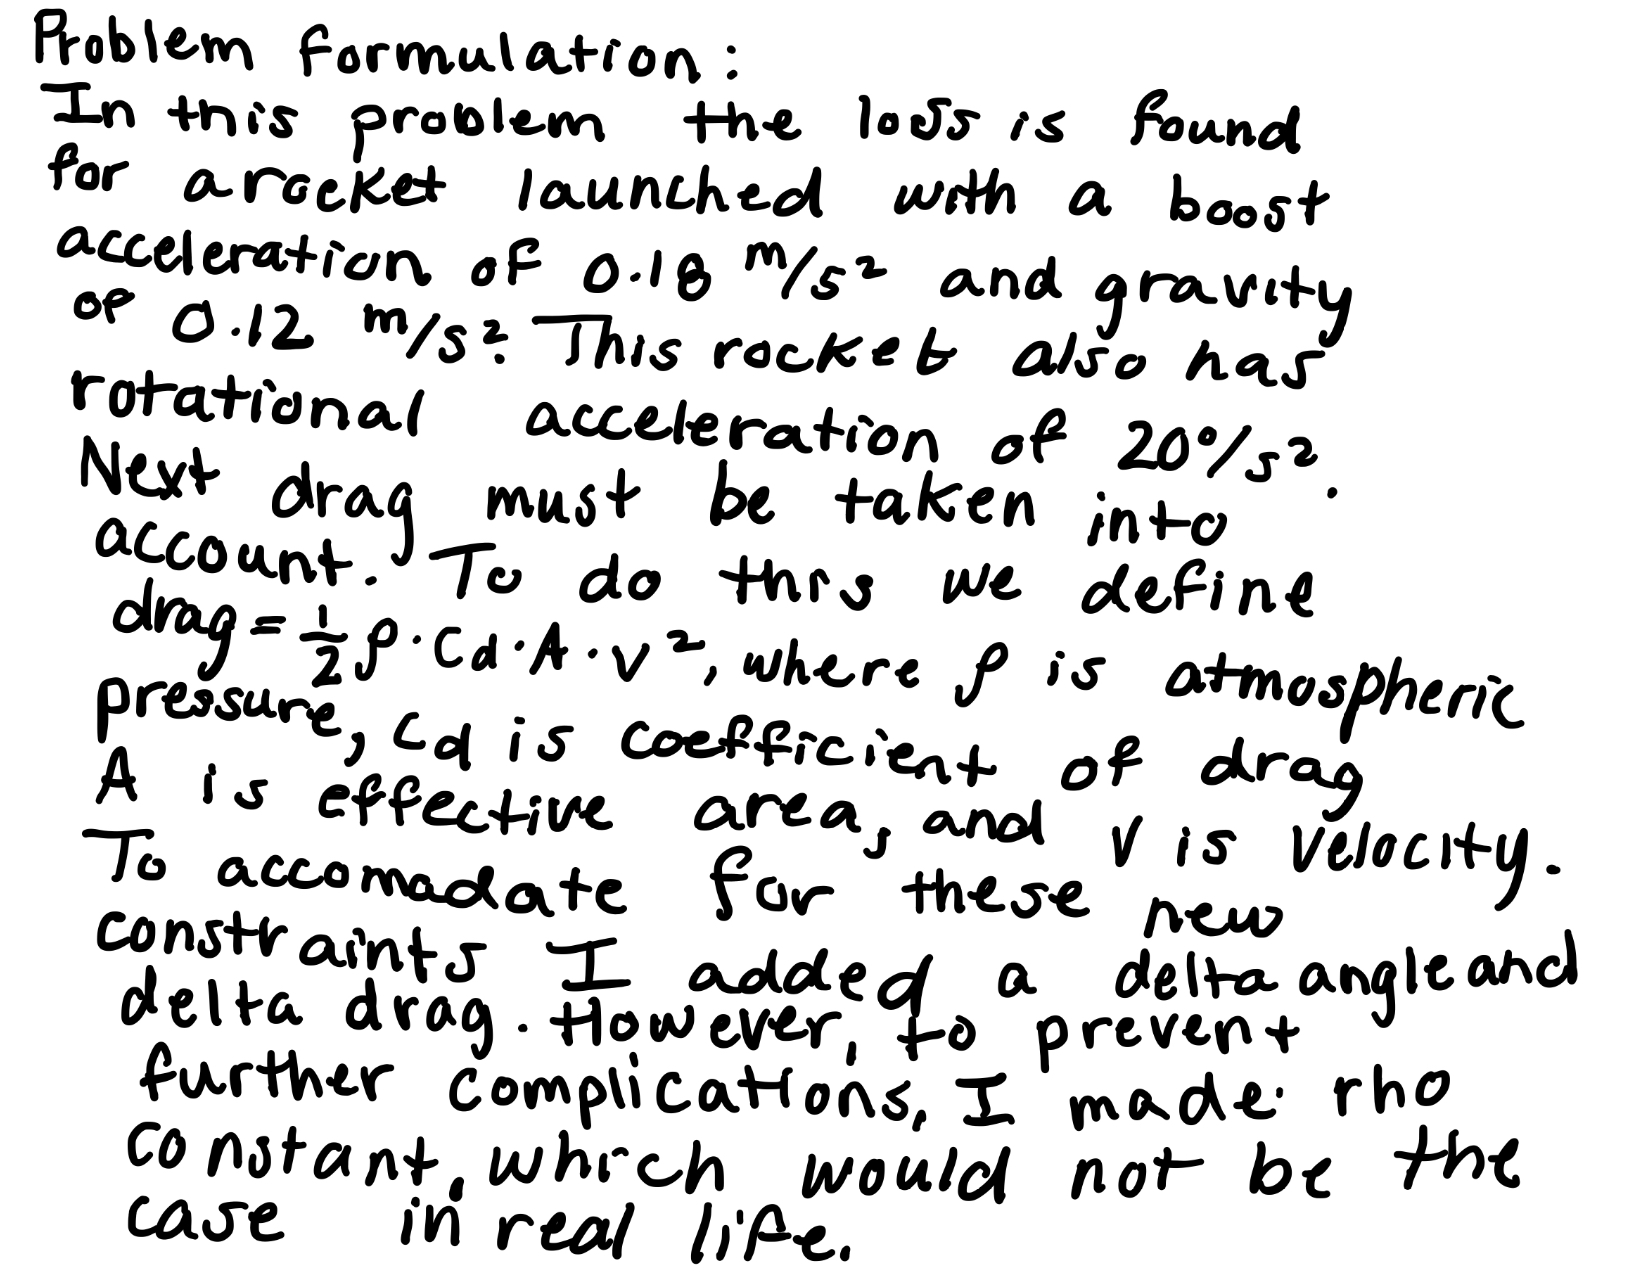 Problem formulation:
In this problem the loss is found
for a rocket launched with a boost
acceleration of 0.18 m/s² and gravity
of 0.12 m/s². This rocket also has
rotational acceleration of 20°/s².
Next drag must be taken into
account. To do this we define
drag = 1/2 ρ · Cd · A · v², where ρ is atmospheric
pressure, Cd is coefficient of drag
A is effective area, and v is velocity.
To accomadate for these new
constraints I added a delta angle and
delta drag. However, to prevent
further complications, I made rho
constant, which would not be the
case in real life.